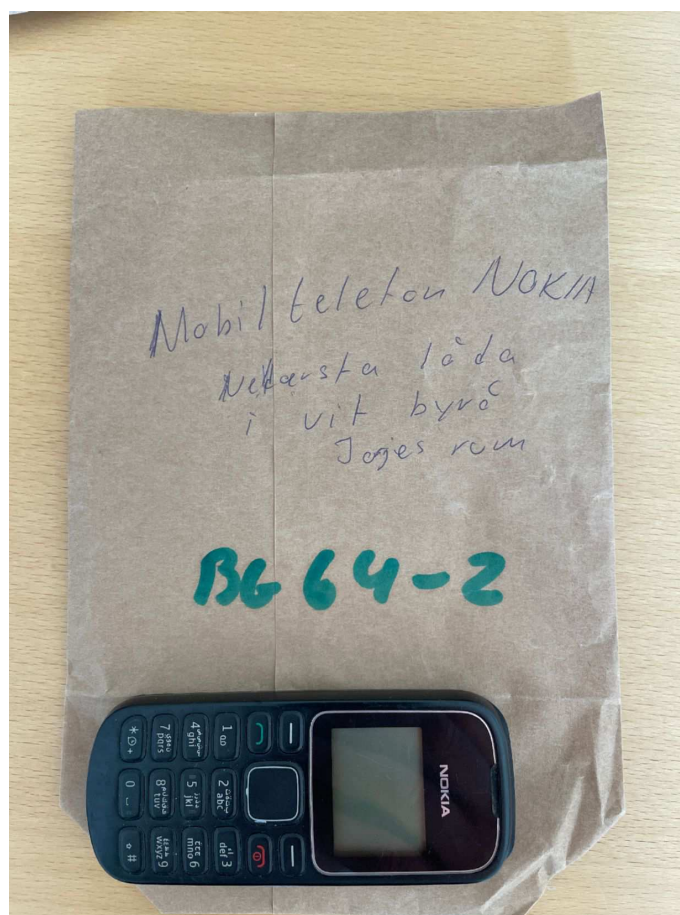 Mobiltelefon NOKIA
Nedersta låda
i vit byrå
rum
BG 64-2
NOKIA
1
2 abc
def 3
4 ghi
5 jkl
mno 6
7 pqrs
8 tuv
wxyz 9
* +
0
#